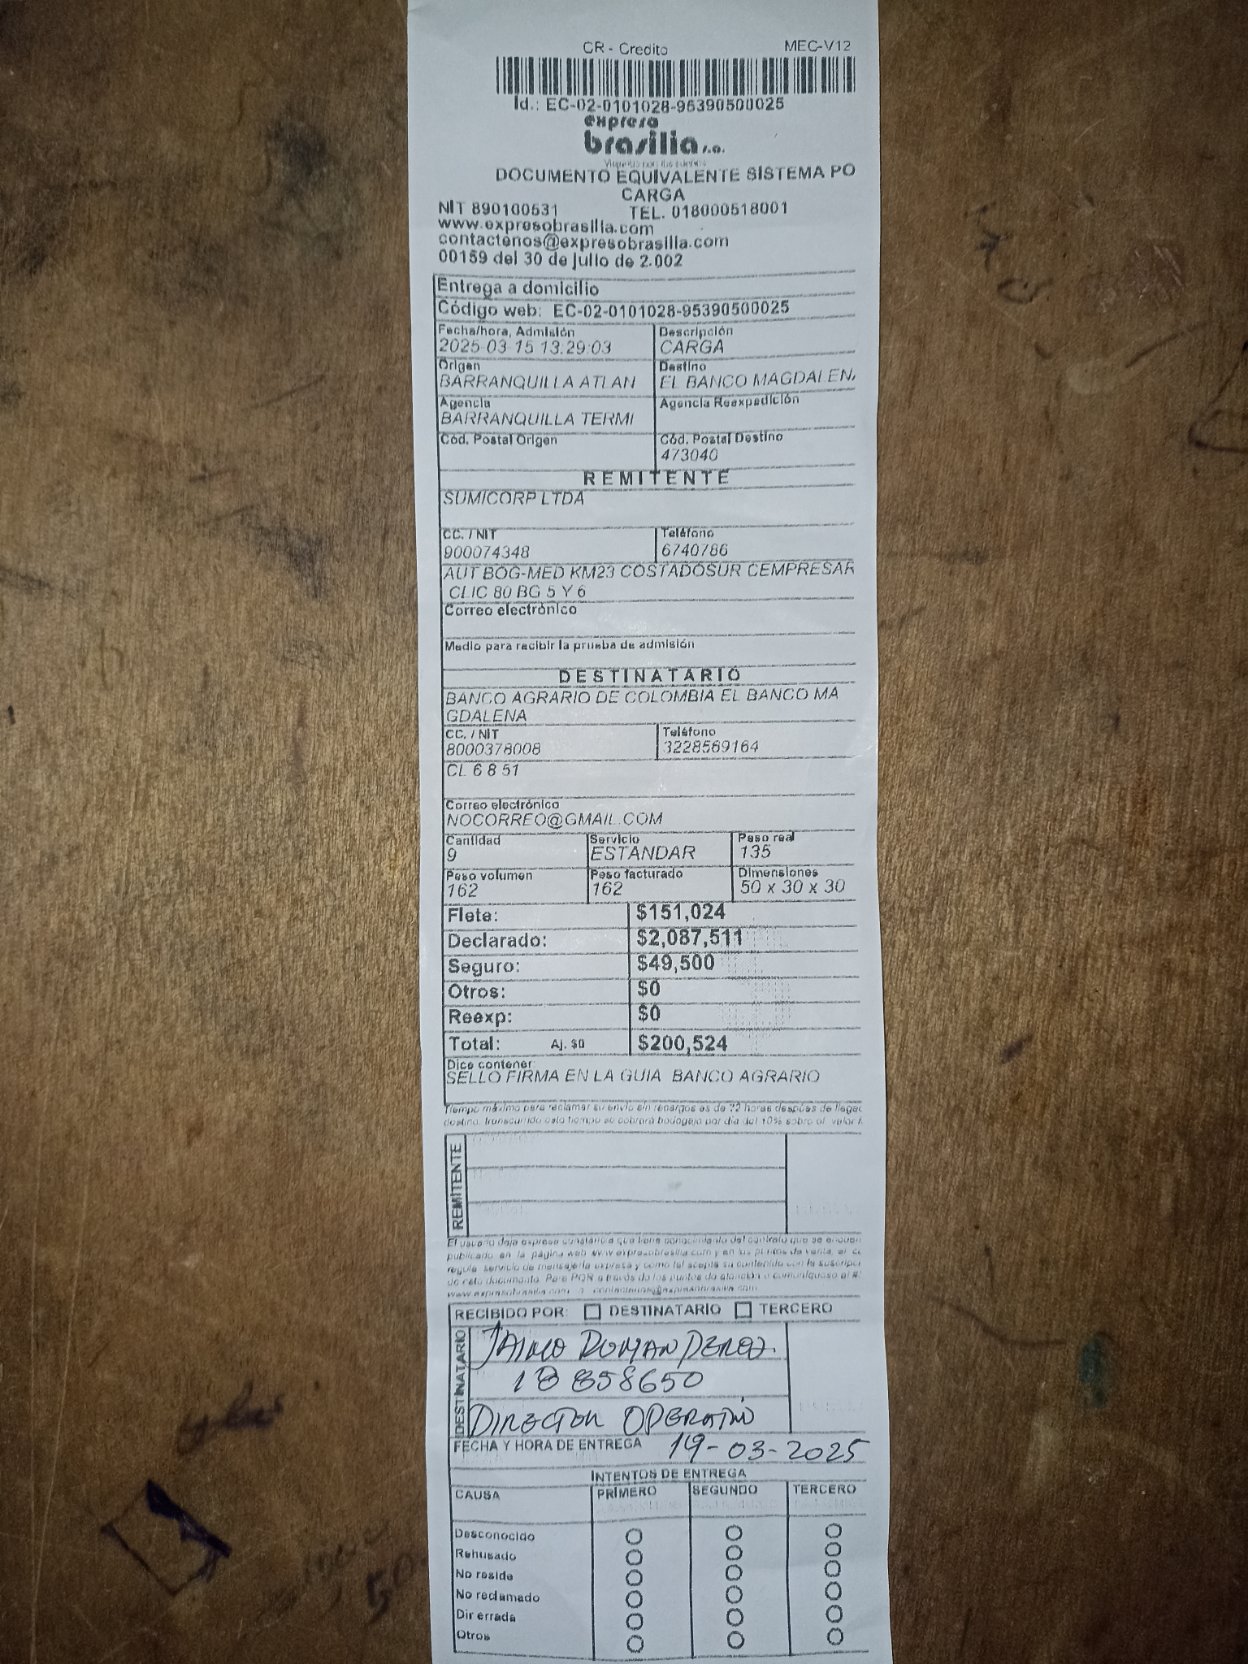 CR - Credito MEC-V12
Id.: EC-02-0101028-95390500025
expreso
brasilia s.a.
DOCUMENTO EQUIVALENTE SISTEMA PO
CARGA
NIT 890100531 TEL. 018000518001
www.expresobrasilia.com
contactenos@expresobrasilia.com
00159 del 30 de julio de 2.002
Entrega a domicilio
Código web: EC-02-0101028-95390500025
Fecha/hora, Admisión Descripción
2025-03-15 13:29:03 CARGA
Origen Destino
BARRANQUILLA ATLAN EL BANCO MAGDALENA
Agencia Agencia Reexpedición
BARRANQUILLA TERMI
Cód. Postal Origen Cód. Postal Destino
473040
REMITENTE
SUMICORP LTDA
CC. / NIT Teléfono
900074348 6740786
AUT BOG-MED KM23 COSTADOSUR CEMPRESAR
CLIC 80 BG 5 Y 6
Correo electrónico
Medio para recibir la prueba de admisión
DESTINATARIO
BANCO AGRARIO DE COLOMBIA EL BANCO MA
GDALENA
CC. / NIT Teléfono
8000378008 3228569164
CL 6 8 51
Correo electrónico
NOCORREO@GMAIL.COM
Cantidad Servicio Peso real
9 ESTANDAR 135
Peso volumen Peso facturado Dimensiones
162 162 50 x 30 x 30
Flete: $151,024
Declarado: $2,087,511
Seguro: $49,500
Otros: $0
Reexp: $0
Total: Aj. $0 $200,524
Dice contener
SELLO FIRMA EN LA GUIA BANCO AGRARIO
Tiempo máximo para reclamar su envío sin recargos es de 72 horas después de llegar
destino, transcurrido este tiempo se cobrará bodegaje por día del 10% sobre el valor
REMITENTE
El usuario deja expresa constancia que tiene conocimiento del contrato que se encuen
publicado en la página web www.expresobrasilia.com y en los puntos de venta, el
regula servicio de mensajería expresa y como tal acepta su contenido con la suscripci
de este documento. Para PQR a través de los puntos de atención o comuníquese al
www.expresobrasilia.com o contactenos@expresobrasilia.com
RECIBIDO POR: DESTINATARIO TERCERO
DESTINATARIO
JAIME ROMAN PEREZ.
18 858650
DIRECTOR OPERATIVO
FECHA Y HORA DE ENTREGA 19-03-2025
INTENTOS DE ENTREGA
CAUSA PRIMERO SEGUNDO TERCERO
Desconocido
Rehusado
No reside
No reclamado
Dir errada
Otros